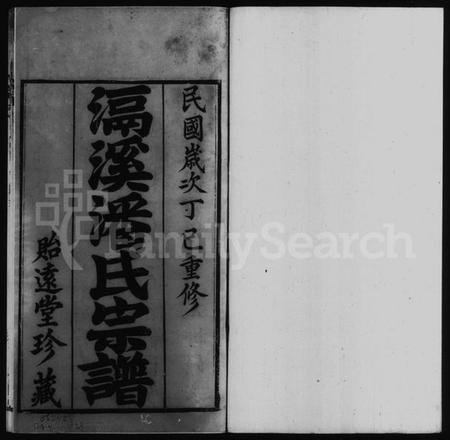 民國歲次丁巳重修
滆溪潘氏宗譜
貽遠堂珍藏
FamilySearch